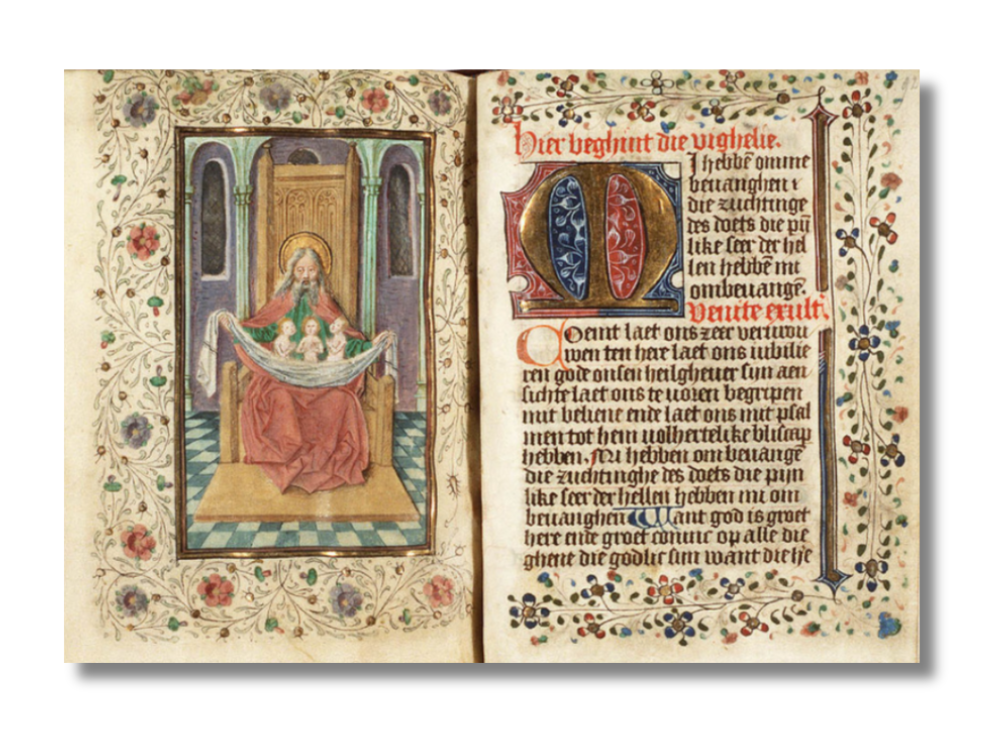 Hier beghint die vighelie.
Mi hebbē omme
bevanghen t
die zuchtinge
des doets die pijn
like seer der hel
len hebbē mi
ombevangē.
Venite exult.
Coemt laet ons zeer vervrou
wen ten here laet ons iubilie
ren gode onsen heilghever sijn aen
sichte laet ons te voren begripen
mit beliene ende laet ons mit psal
men tot hem volhertelike bliscap
hebben. Mi hebben ombevange
die zuchtinghe des doets die pijn
like seer der hellen hebben mi om
bevanghen Want god is groet
here ende groet coninc op alle die
ghene die godlic sijn want die he